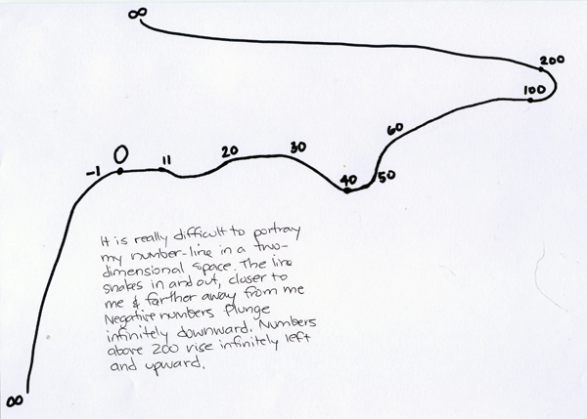 ∞
200
100
60
0
11
20
30
-1
40
50
It is really difficult to portray
my number-line in a two-
dimensional space. The line
snakes in and out, closer to
me & farther away from me
Negative numbers plunge
infinitely downward. Numbers
above 200 rise infinitely left
and upward.
∞